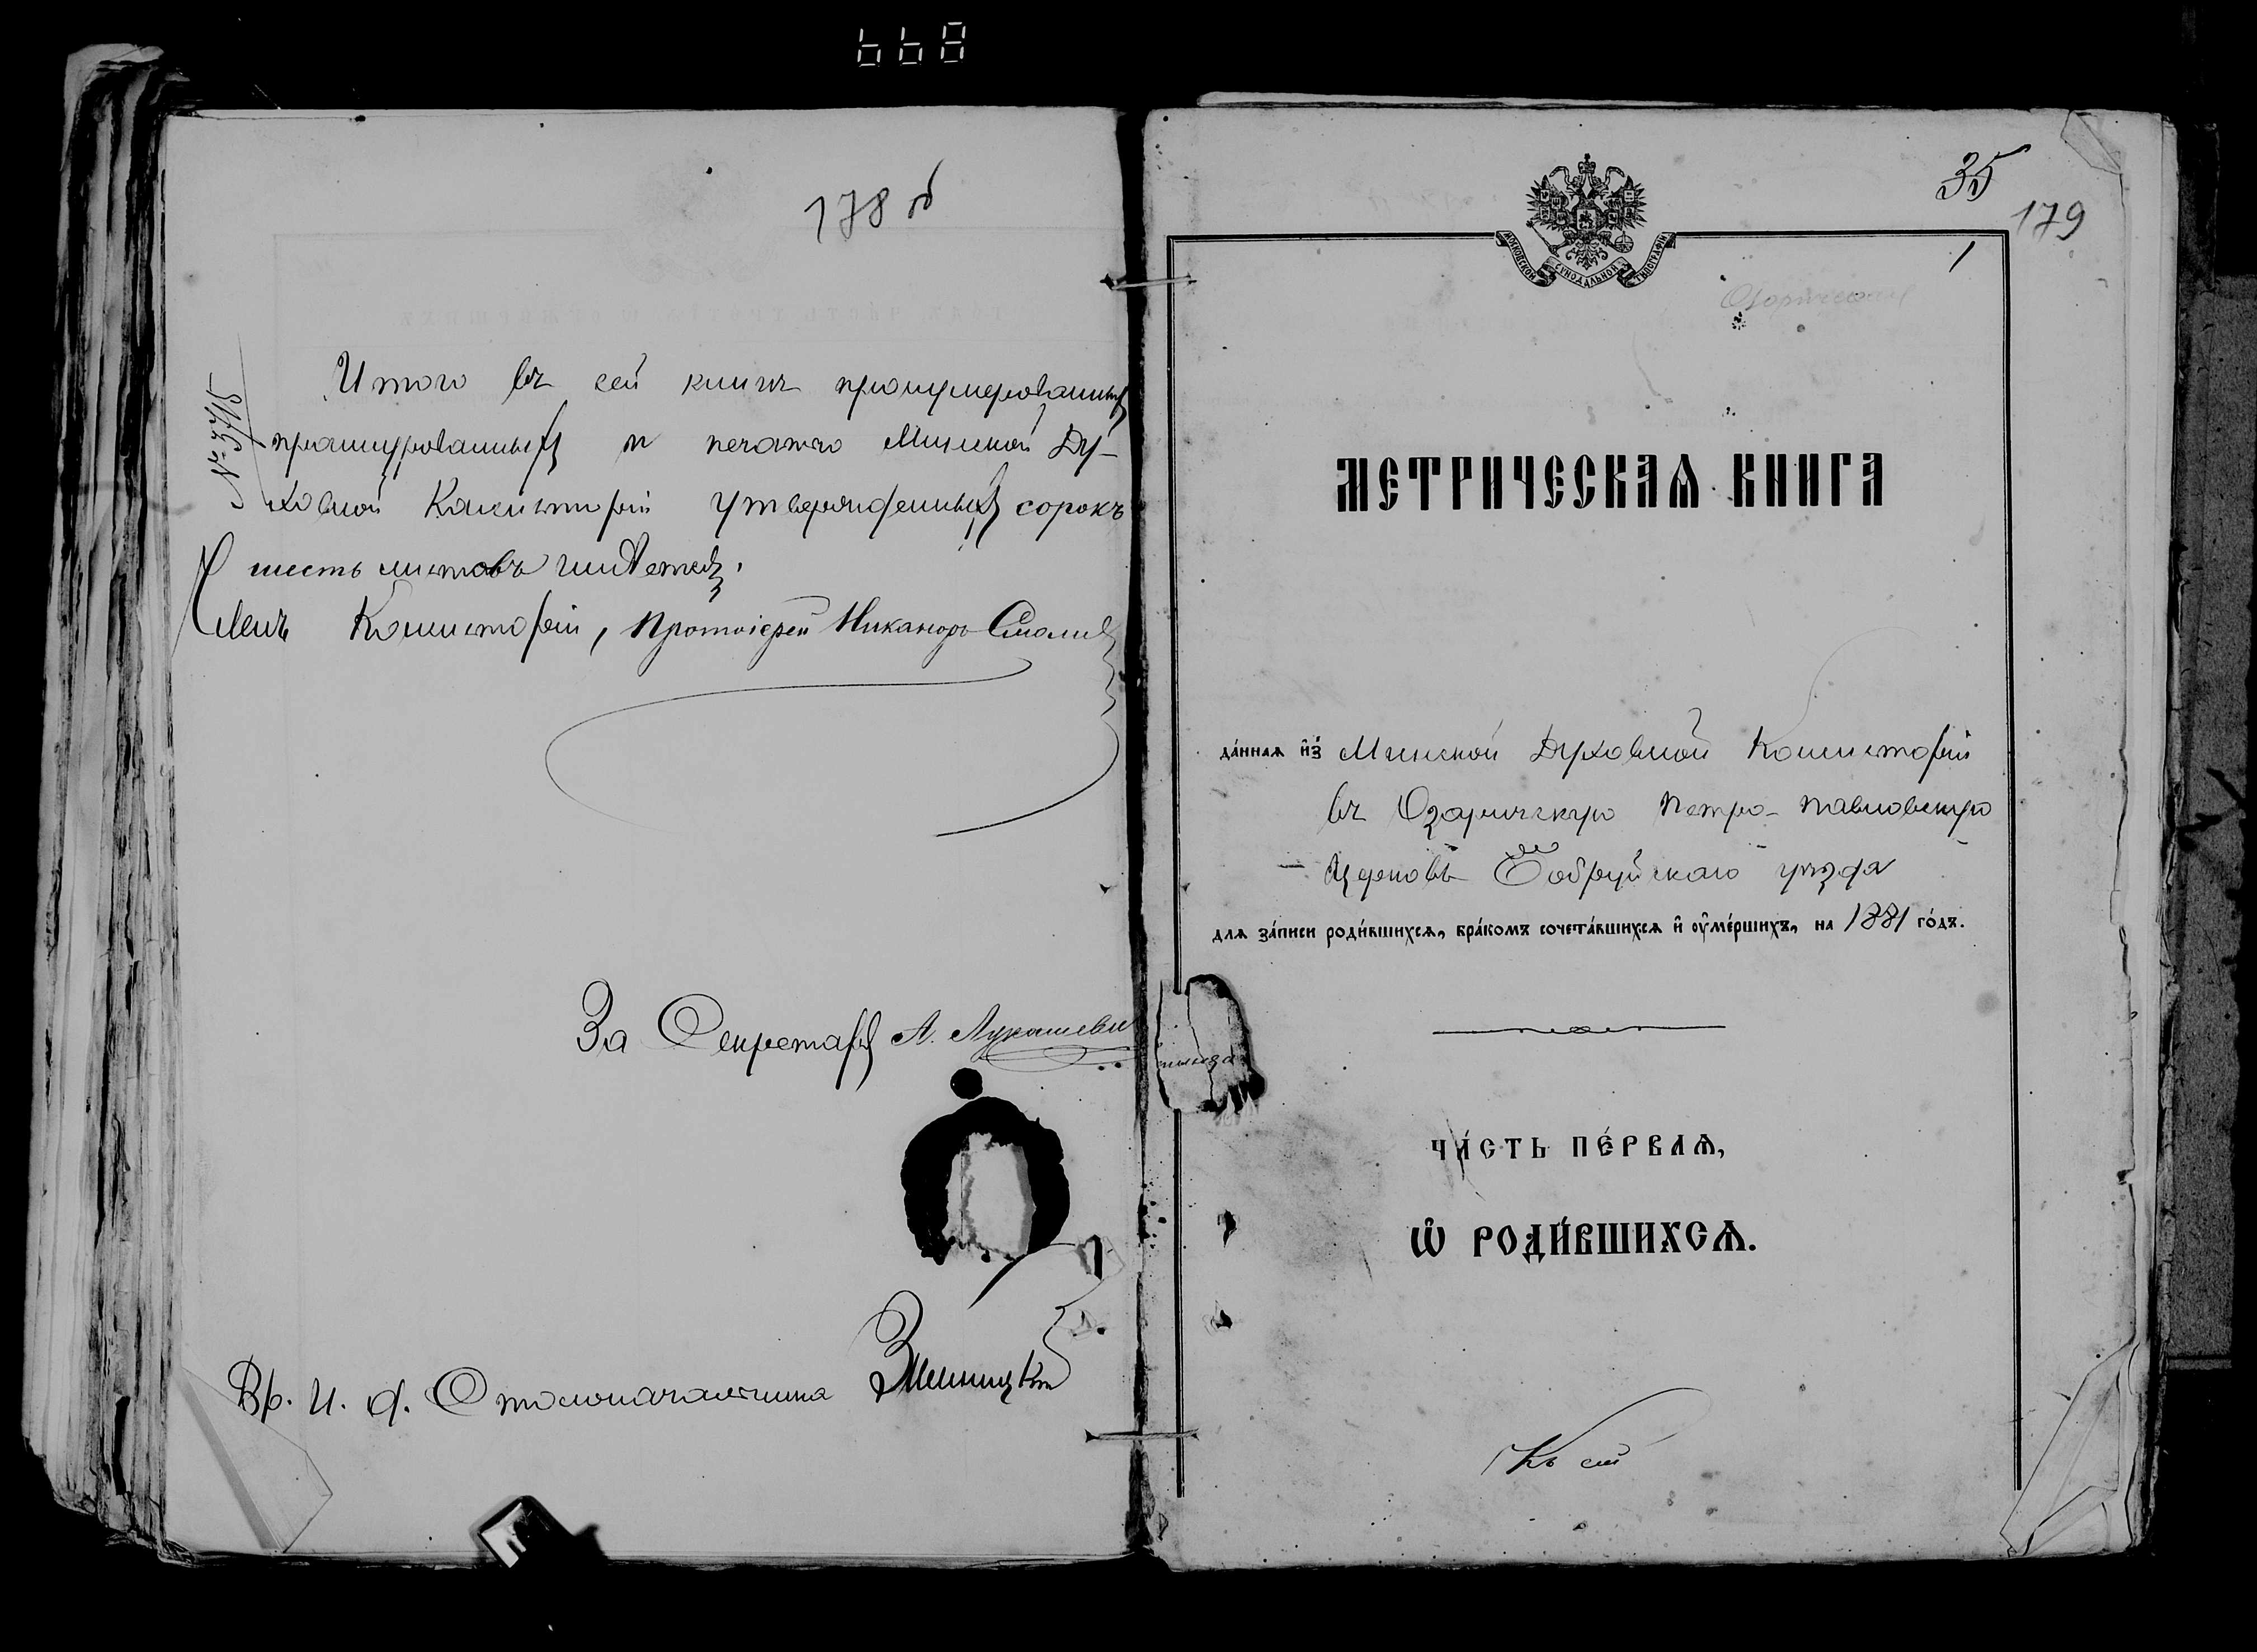 178 об
№ 3715
Итого въ сей книгѣ пронумерованныхъ
прошнурованныхъ и печатью Минской Ду-
ховной Консисторіи утвержденныхъ сорокъ
шесть листовъ имѣется.
Членъ Консисторіи, Протоіерей Никаноръ Смолич
За Секретаря А. Лукашевич
Вр. И. д. Столоначальника
35
179
1
МОСКОВСКОЙ СѴНОДАЛЬНОЙ ТИПОГРАФІИ
МЕТРИЧЕСКАѦ КНИГА
да́ннаѧ и҆з̾ Минской Духовной Консисторіи
въ Озаричскую Петро-Павловскую
Церковь Бобруйскаго уѣзда
длѧ за́писи роди́вшихсѧ, бра́комъ сочета́вшихсѧ и҆ ᲂу҆ме́ршихъ, на 1881 го́дъ.
ЧА́СТЬ ПЕ́РВАѦ,
Ѽ РОДИ́ВШИХСѦ.